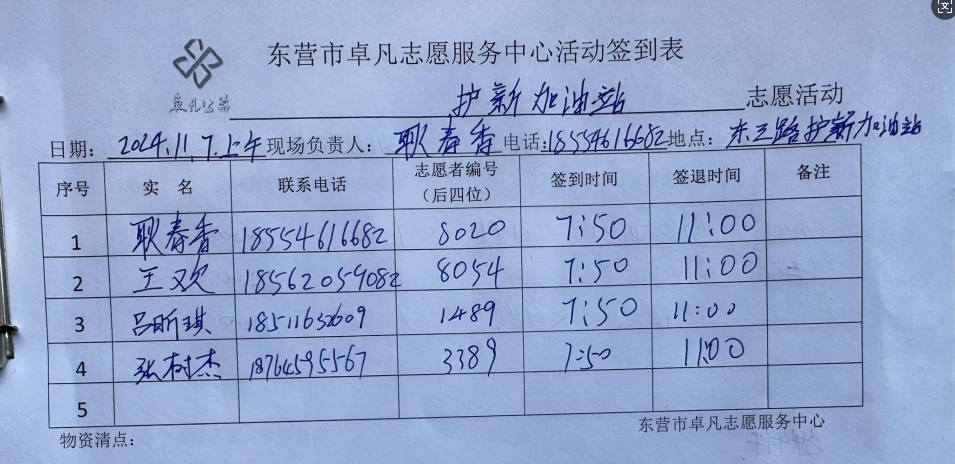 东营市卓凡志愿服务中心活动签到表
卓凡公益
护新加油站 志愿活动
日期: 2024.11.7.上午 现场负责人: 耿春香 电话:18554616682 地点: 东三路护新加油站
序号 实 名 联系电话 志愿者编号（后四位） 签到时间 签退时间 备注
1 耿春香 18554616682 8020 7:50 11:00
2 王欢 18562059082 8054 7:50 11:00
3 吕昕琪 18511632609 1489 7:50 11:00
4 张树杰 18764595567 3389 7:50 11:00
5
物资清点:
东营市卓凡志愿服务中心